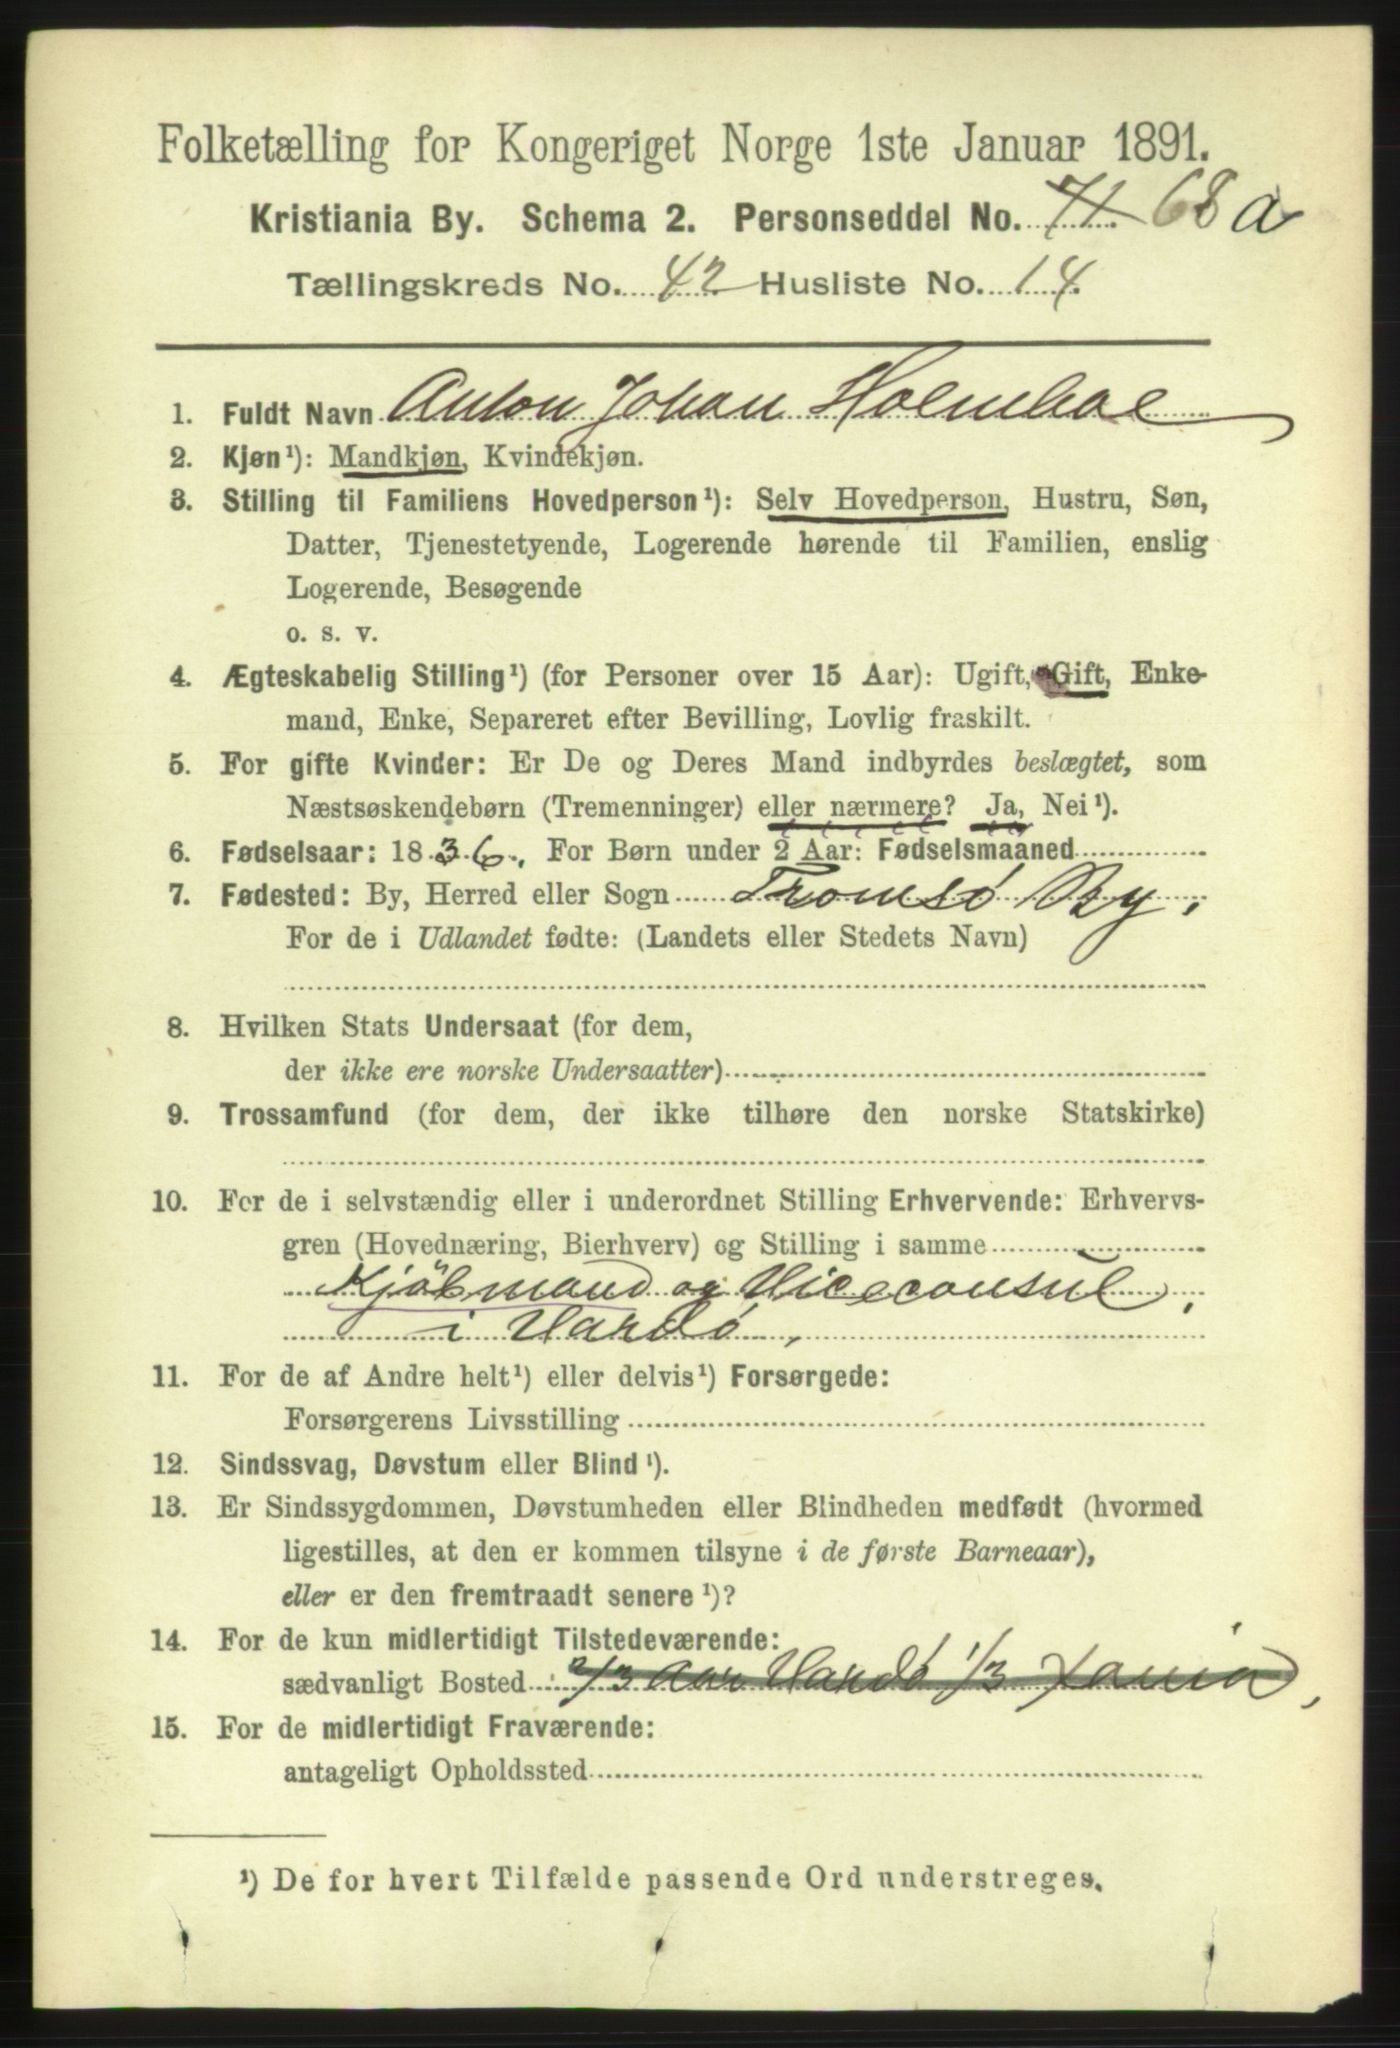 Folketælling for Kongeriget Norge 1ste Januar 1891.
Kristiania By. Schema 2. Personseddel No. 71 68 a
Tællingskreds No. 42 Husliste No. 14.
1. Fuldt Navn Anton Johan Holmboe
2. Kjøn¹): Mandkjøn, Kvindekjøn.
3. Stilling til Familiens Hovedperson¹): Selv Hovedperson, Hustru, Søn,
Datter, Tjenestetyende, Logerende hørende til Familien, enslig
Logerende, Besøgende
o. s. v.
4. Ægteskabelig Stilling¹) (for Personer over 15 Aar): Ugift, Gift, Enke-
mand, Enke, Separeret efter Bevilling, Lovlig fraskilt.
5. For gifte Kvinder: Er De og Deres Mand indbyrdes beslægtet, som
Næstsøskendebørn (Tremenninger) eller nærmere? Ja, Nei¹).
6. Fødselsaar: 1836. For Børn under 2 Aar: Fødselsmaaned
7. Fødested: By, Herred eller Sogn Tromsø By.
For de i Udlandet fødte: (Landets eller Stedets Navn)
8. Hvilken Stats Undersaat (for dem,
der ikke ere norske Undersaatter)
9. Trossamfund (for dem, der ikke tilhøre den norske Statskirke)
10. For de i selvstændig eller i underordnet Stilling Erhvervende: Erhvervs-
gren (Hovednæring, Bierhverv) og Stilling i samme
Kjøbmand og Viceconsul,
i Vardø,
11. For de af Andre helt¹) eller delvis¹) Forsørgede:
Forsørgerens Livsstilling
12. Sindssvag, Døvstum eller Blind¹).
13. Er Sindssygdommen, Døvstumheden eller Blindheden medfødt (hvormed
ligestilles, at den er kommen tilsyne i de første Barneaar),
eller er den fremtraadt senere¹)?
14. For de kun midlertidigt Tilstedeværende:
sædvanligt Bosted 2/3 Aar Vardø 1/3 Xania,
15. For de midlertidigt Fraværende:
antageligt Opholdssted
¹) De for hvert Tilfælde passende Ord understreges.